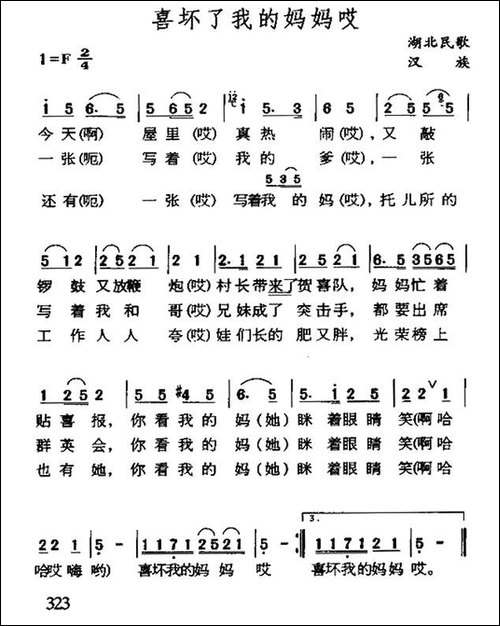 喜坏了我的妈妈哎
1=F 2/4
湖北民歌
汉 族
i 5 6· 5 | 5 6 5 2 | i 5· 3 | 2 5 5 5 |
今天(啊) 屋里(哎) 真热 闹(哎),又 敲
一张(呃) 写着(哎) 我的 爹(哎),一 张
5 3 5
还有(呃) 一张(哎) 写着我的妈(哎),托儿所的
5 1 2 | 2 5 2 1 | 2 1 | 2· 1 2 1 | 2 5 2 1 | 6· 5 3 5 6 5 |
锣 鼓 又放鞭 炮(哎) 村长带来了贺喜队, 妈妈忙着
写着我和 哥(哎) 兄妹成了 突击手, 都要出席
工作人人 夸(哎) 娃们长的 肥又胖, 光荣榜上
1 2 5 2 | 5 5 #4 5 | 6· 5 | 5· i 2 5 | 2 2 V 1 |
贴喜报, 你看我的 妈(她) 眯着眼睛 笑(啊哈
群英会, 你看我的 妈(她) 眯着眼睛 笑(啊哈
也有她, 你看我的 妈(她) 眯着眼睛 笑(啊哈
3.
2 2 1 | 5 - | 1 1 7 1 2 5 2 1 | 5 - :| 1 1 7 1 2 1 | 5 - ‖
哈哎嗨哟) 喜坏我的妈妈 哎 喜坏我的妈妈哎。
323